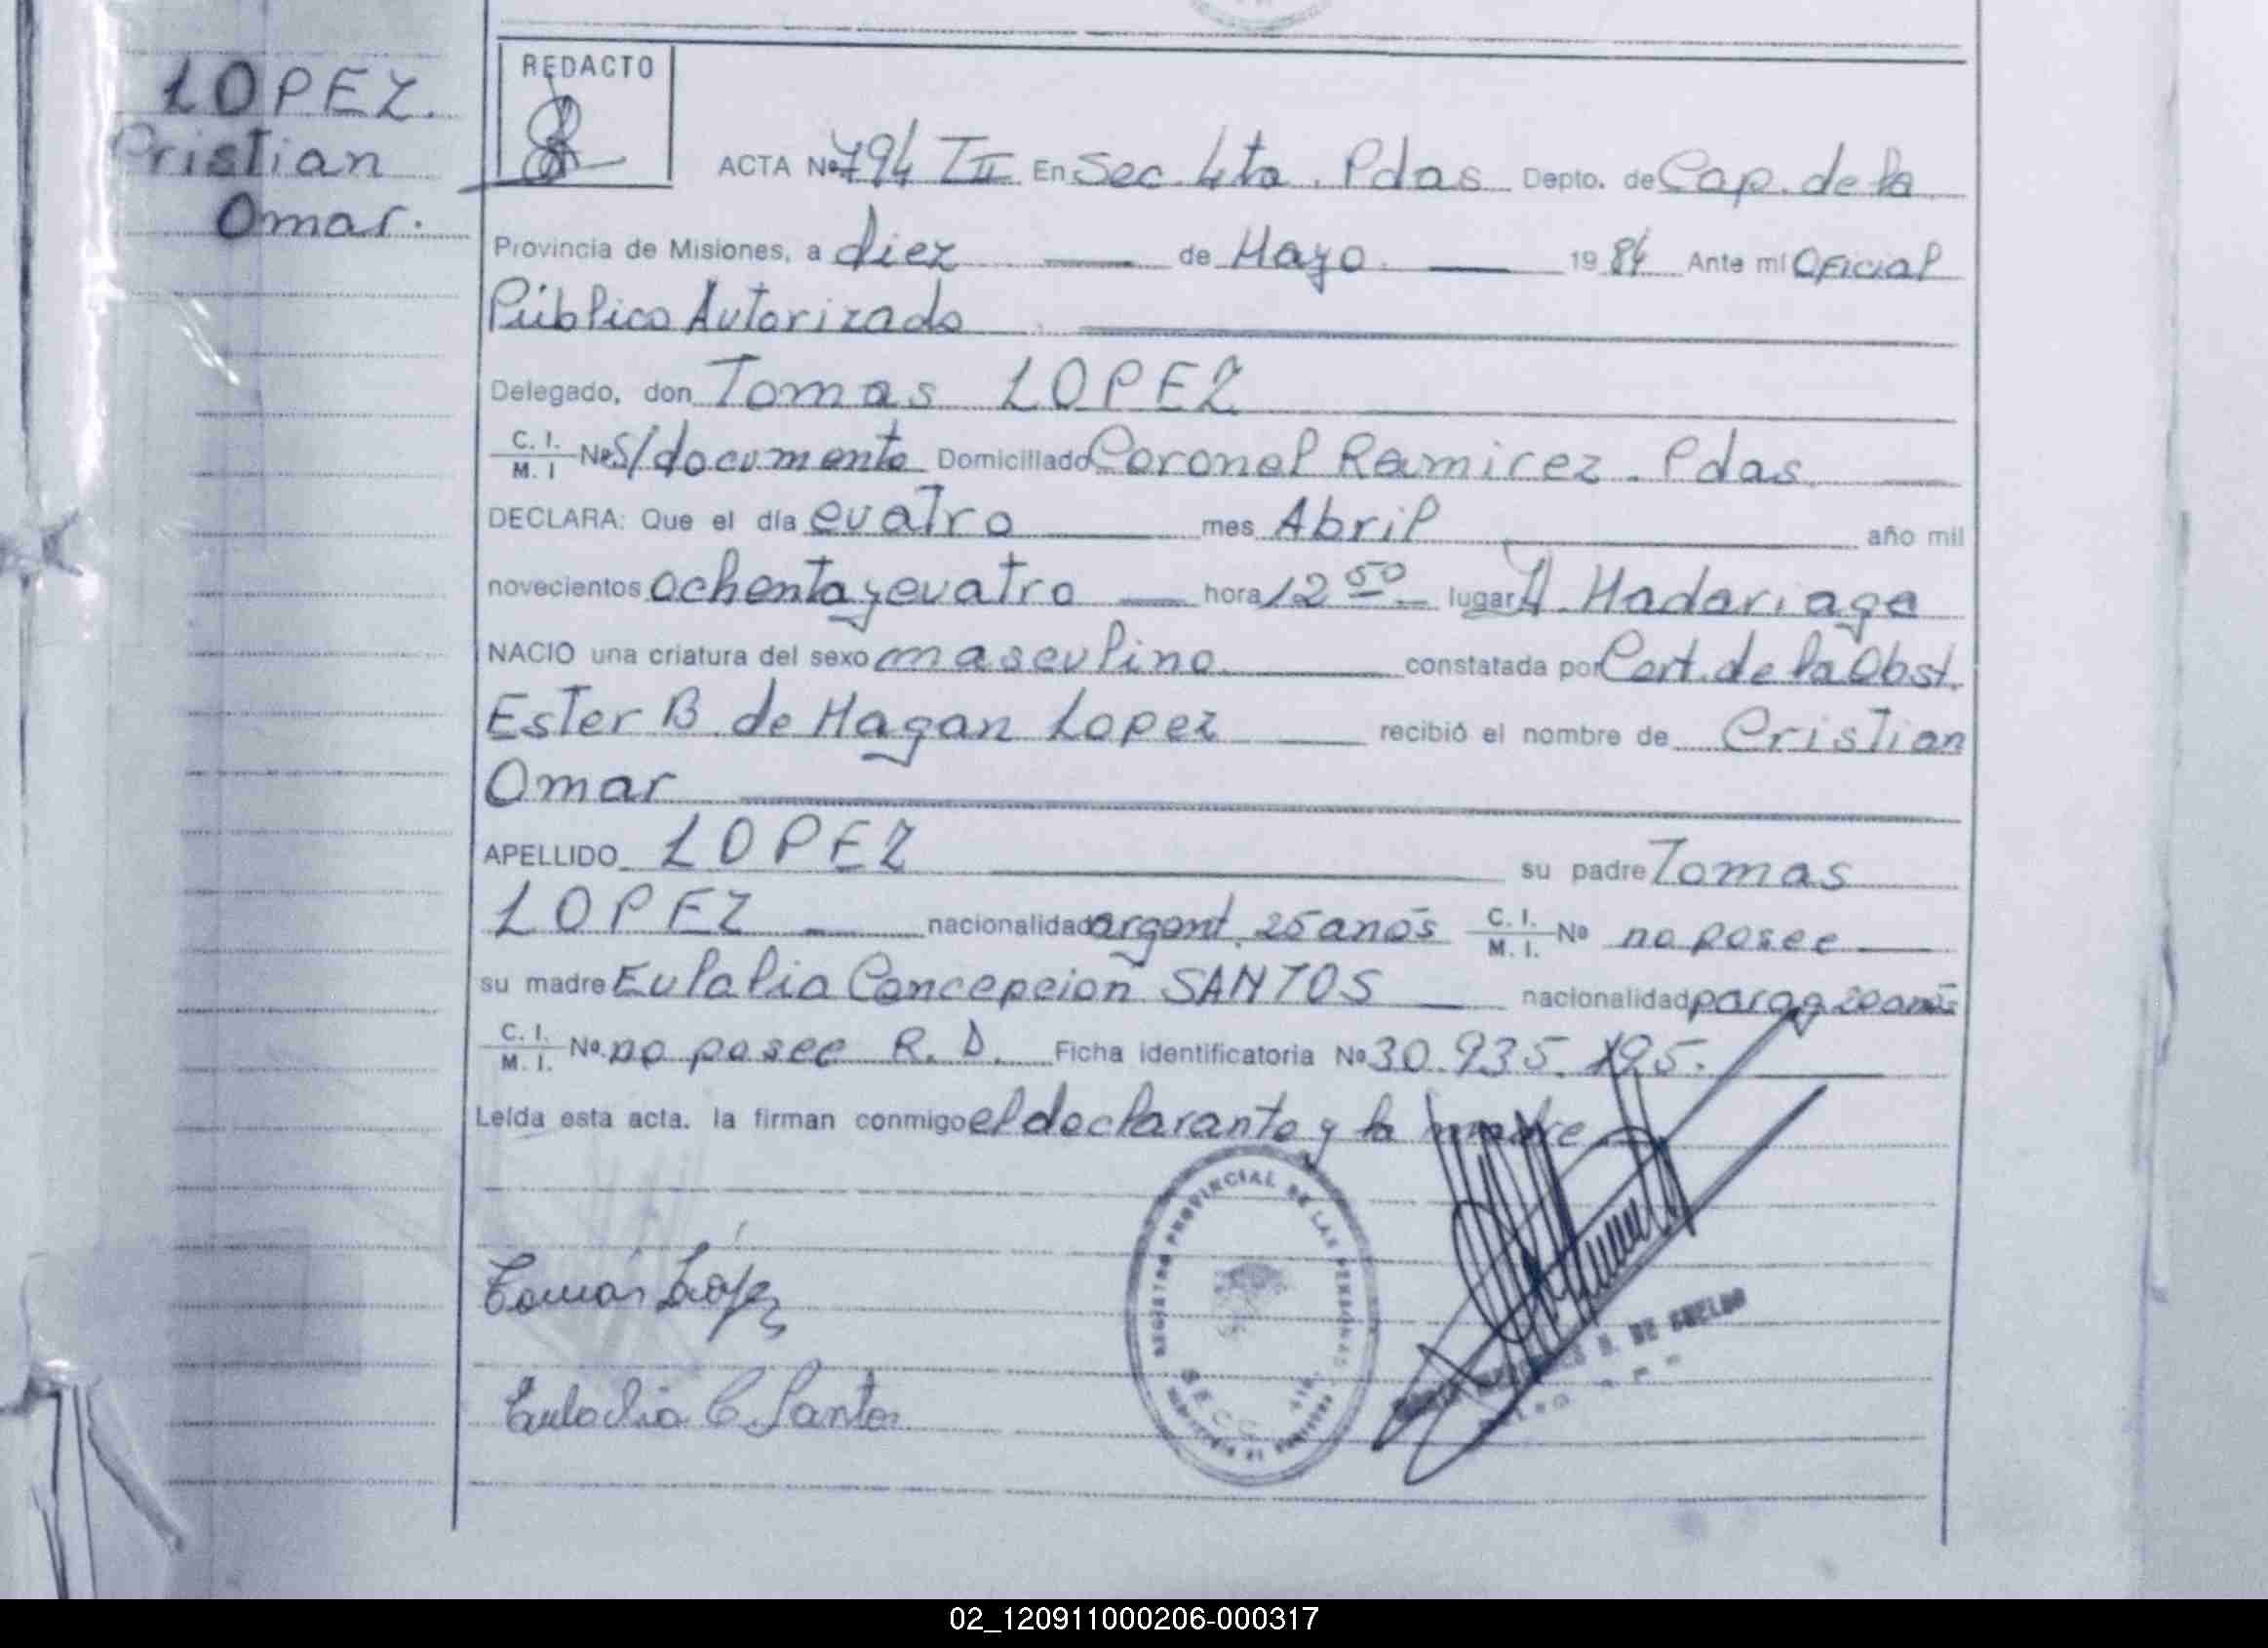 LOPEZ.
Cristian
Omar.
REDACTO
ACTA Nº 794 TII En Sec 4ta. Pdas Depto. de Cap. de la
Provincia de Misiones, a diez de Mayo 1984 Ante mí Oficial
Público Autorizado
Delegado, don Tomas LOPEZ
C. I. M. I Nº S/documento Domiciliado Coronel Ramirez. Pdas
DECLARA: Que el día cuatro mes Abril año mil
novecientos ochenta y cuatro hora 12 50 lugar H. Madariaga
NACIO una criatura del sexo masculino constatada por Cert. de la Obst.
Ester B. de Hagan Lopez recibió el nombre de Cristian
Omar
APELLIDO LOPEZ su padre Tomas
LOPEZ nacionalidad argent. 25 años C. I. M. I. Nº no posee
su madre Eulalia Concepcion SANTOS nacionalidad parag 20 años
C. I. M. I. Nº no posee R. D. Ficha identificatoria Nº 30.935.195.
Leída esta acta. la firman conmigo el declarante y la madre
REGISTRO PROVINCIAL DE LAS PERSONAS
SECC 4ta.
Tomás López
C. Santos
DE CUELLO
02_120911000206-000317